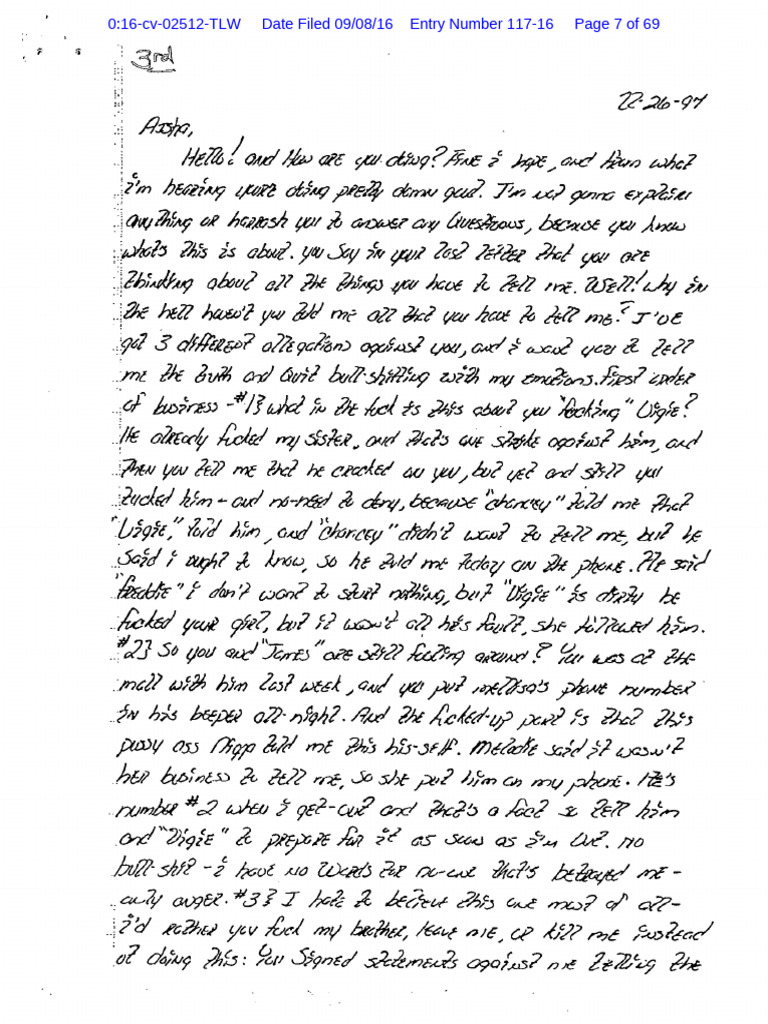 0:16-cv-02512-TLW Date Filed 09/08/16 Entry Number 117-16 Page 7 of 69
3rd
22-26-97
Aisha,
Hello! and How are you doing? Fine i hope, and from what
i'm hearing your'e doing pretty damn good. I'm not gonna explain
anything or harrash you to answer any Questions, because you know
whats this is about. you say in your last letter that you are
thinking about all the things you have to tell me. Well! why in
the hell haven't you told me all that you have to tell me? I'VE
got 3 different allegations against you, and i want you to tell
me the truth and Quit bull-shitting with my emotions. First order
of business - #1} what in the fuck is this about you "fucking" Vigie?
He already fucked my sister, and thats one strike against him, and
then you tell me that he cracked on you, but yet and still you
fucked him - and no-need to deny, because "chancey" told me that
"Vigie," told him, and "chancey" didn't want to tell me, but he
said i ought to know, so he told me today on the phone. He said
"freddie" i don't want to start nothing, but "Vigie" is dirty he
fucked your girl, but it wasn't all his fault, she followed him.
#2} So you and "James" are still fooling around? You was at the
mall with him last week, and you put mellisa's phone number
in his beeper all-night. And the fucked-up part is that this
pussy ass Nigga told me this his-self. Melodie said it wasn't
her business to tell me, so she put him on my phone. He's
number #2 when i get-out and that's a fact so tell him
and "Vigie" to prepare for it as soon as i'm out. no
bull-shit - i have no words for no-one that's betrayed me -
only anger. #3} I hate to believe this one most of all-
i'd rather you fuck my brother, leave me, or kill me instead
of doing this: You signed statements against me telling the